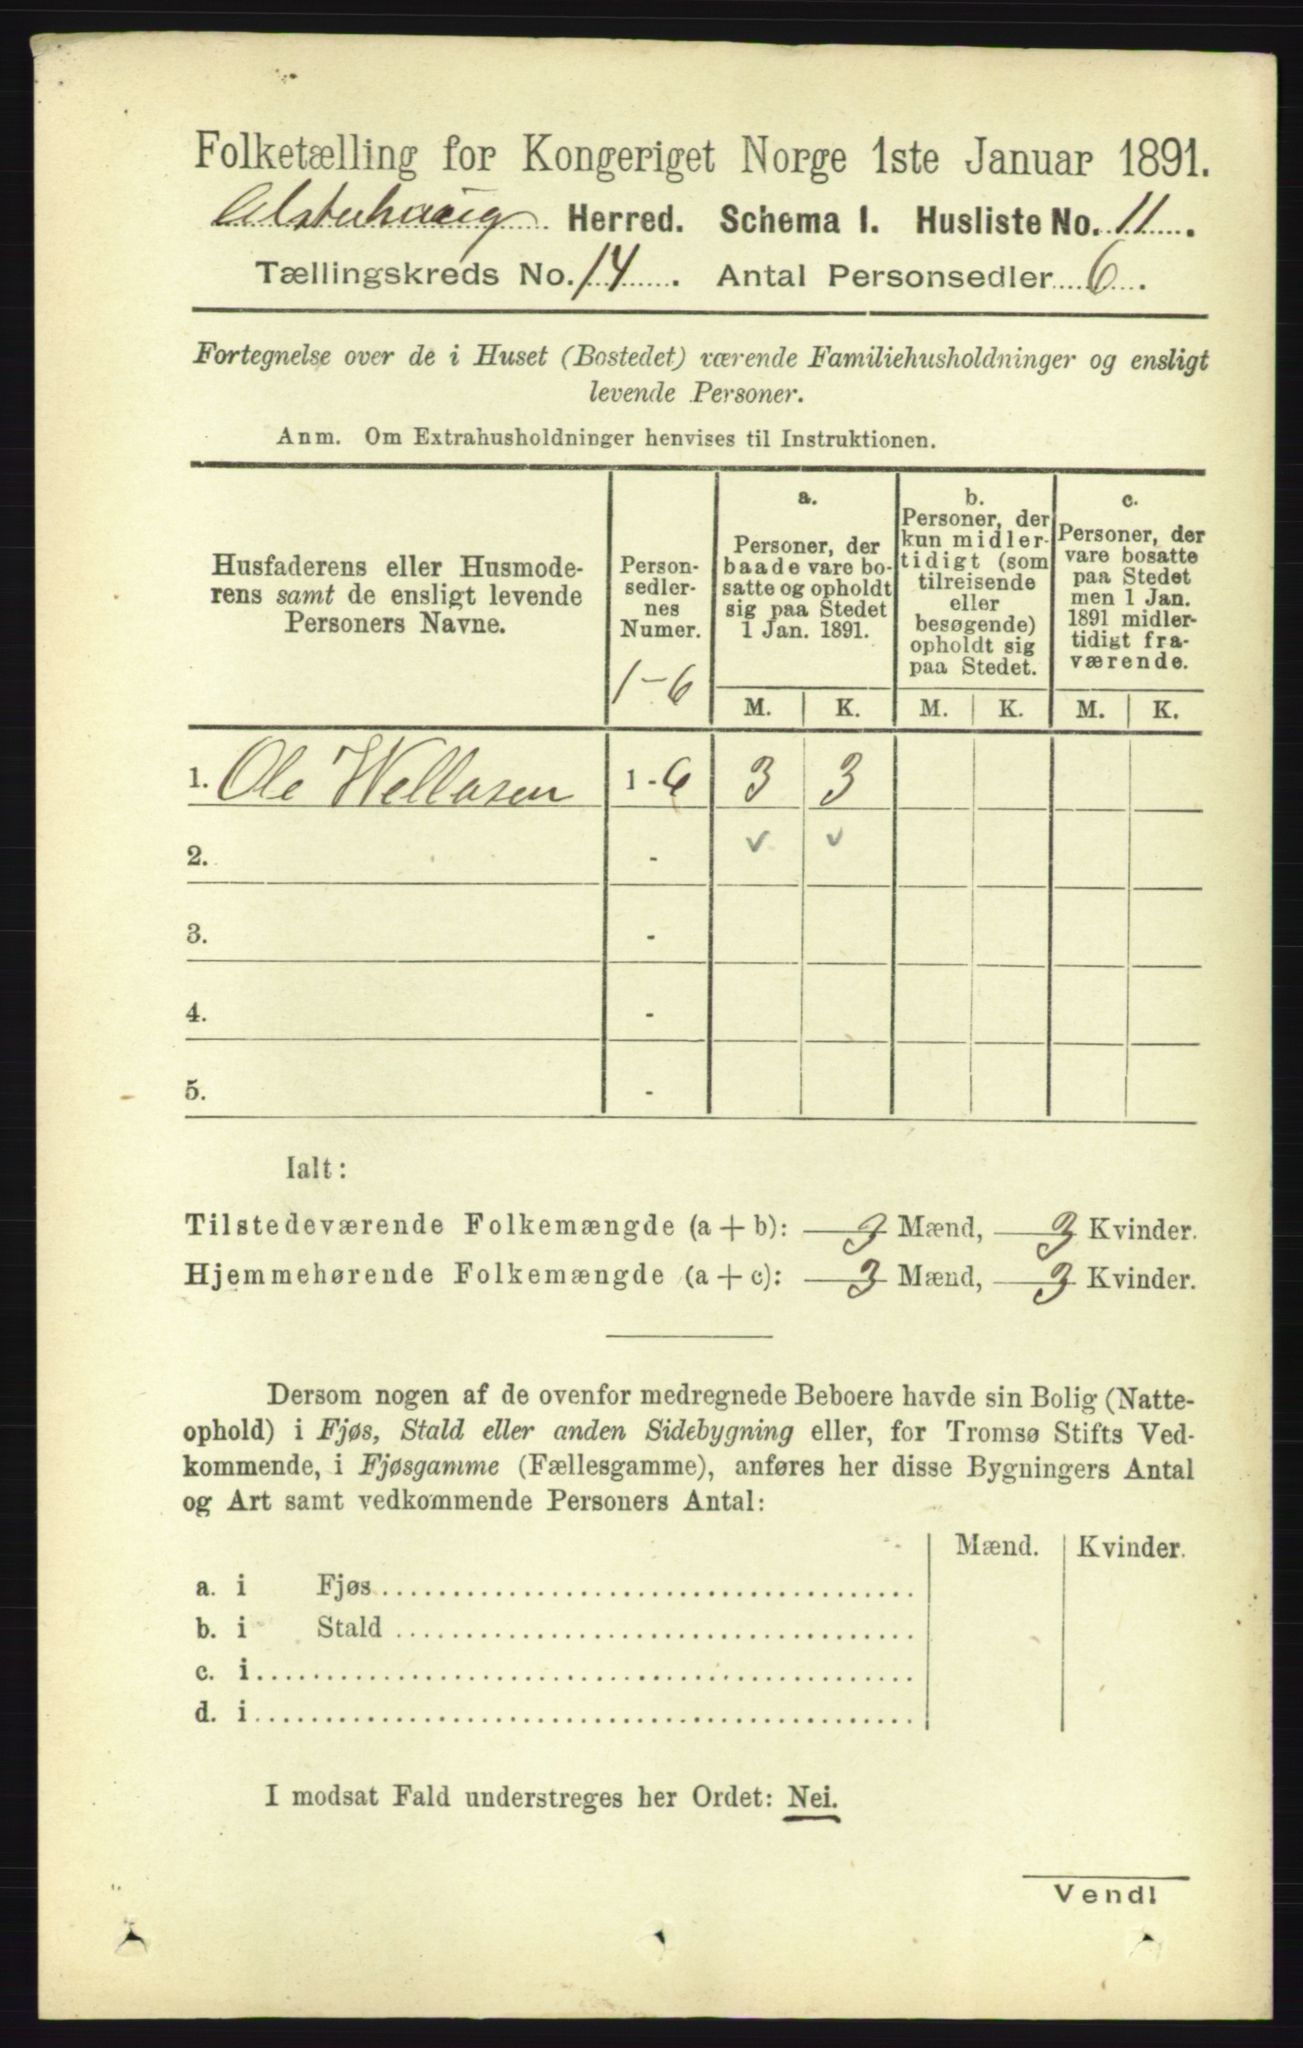 Folketælling for Kongeriget Norge 1ste Januar 1891.
Alstenhaug Herred. Schema 1. Husliste No. 11.
Tællingskreds No. 14. Antal Personsedler 6.
Fortegnelse over de i Huset (Bostedet) værende Familiehusholdninger og ensligt
levende Personer.
Anm. Om Extrahusholdninger henvises til Instruktionen.
Husfaderens eller Husmode-
rens samt de ensligt levende
Personers Navne.
Person-
sedler-
nes
Numer.
1-6
a.
Personer, der
baade vare bo-
satte og opholdt
sig paa Stedet
1 Jan. 1891.
b.
Personer, der
kun midler-
tidigt (som
tilreisende
eller
besøgende)
opholdt sig
paa Stedet.
c.
Personer, der
vare bosatte
paa Stedet
men 1 Jan.
1891 midler-
tidigt fra-
værende.
M. K. M. K. M. K.
1. Ole Wellasen 1-6 3 3
2. - v v
3. -
4. -
5. -
Ialt:
Tilstedeværende Folkemængde (a + b): 3 Mænd, 3 Kvinder.
Hjemmehørende Folkemængde (a + c): 3 Mænd, 3 Kvinder.
Dersom nogen af de ovenfor medregnede Beboere havde sin Bolig (Natte-
ophold) i Fjøs, Stald eller anden Sidebygning eller, for Tromsø Stifts Ved-
kommende, i Fjøsgamme (Fællesgamme), anføres her disse Bygningers Antal
og Art samt vedkommende Personers Antal:
Mænd. Kvinder.
a. i Fjøs
b. i Stald
c. i
d. i
I modsat Fald understreges her Ordet: Nei.
Vend!